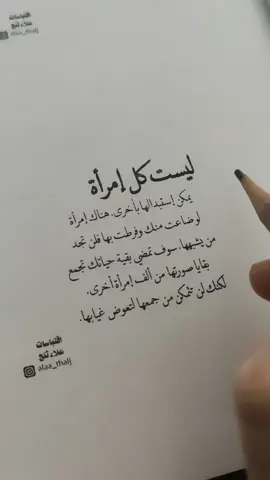 اقتباسات
علاء ثلج
alaa_thalj
ليست كل إمرأة
يمكن إستبدالها بأخرى. هناك إمرأة
لو ضاعت منك وفرطت بها فلن تجد
من يشبهها. سوف تمضي بقية حياتك تجمع
بقايا صورتها من ألف إمرأة أخرى.
لكنك لن تتمكن من جمعها لتعوض غيابها.
اقتباسات
علاء ثلج
alaa_thalj